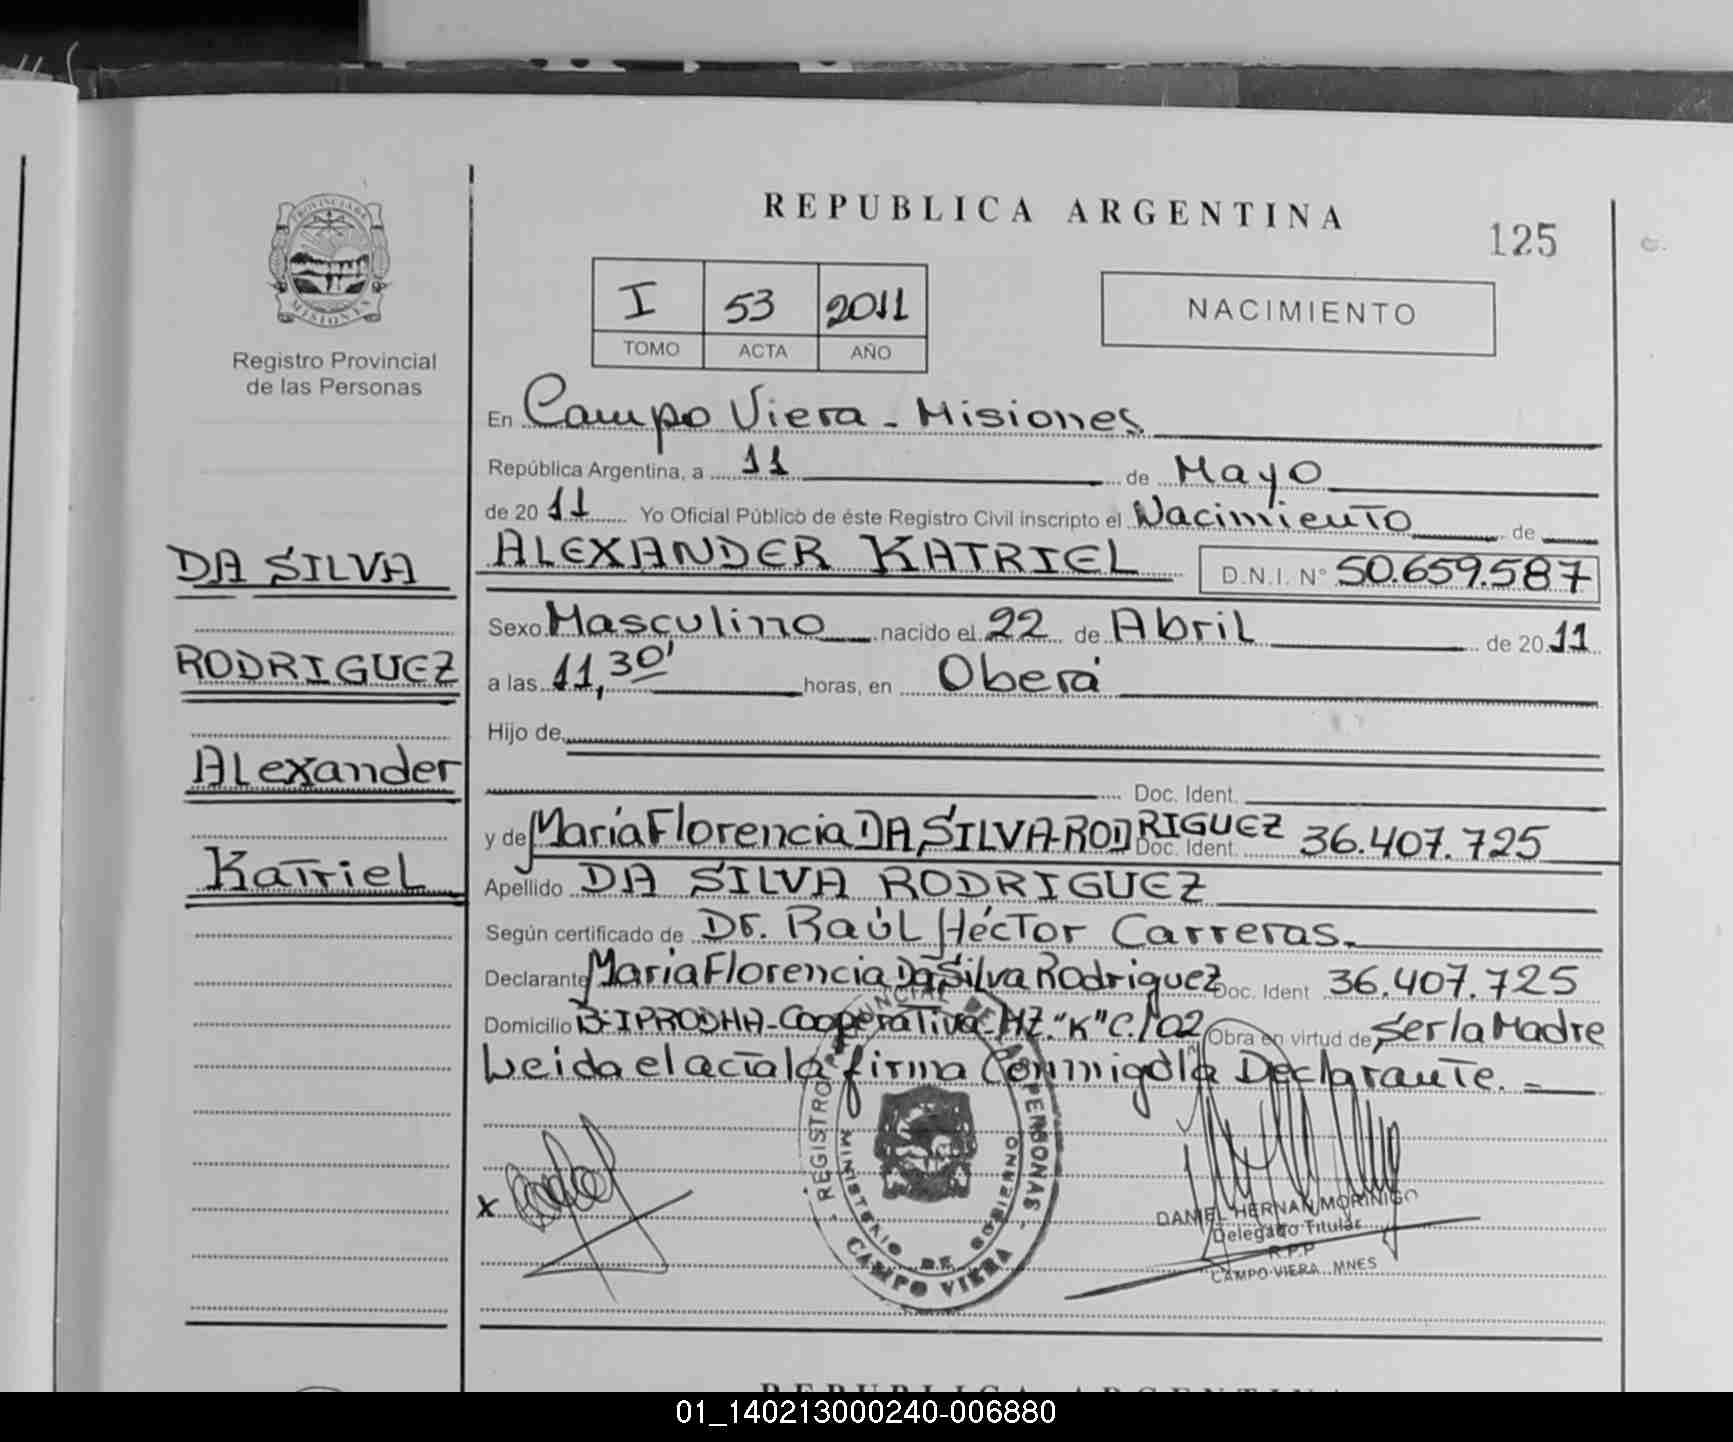 PROVINCIA DE
MISIONES
Registro Provincial
de las Personas
DA SILVA
RODRIGUEZ
Alexander
Katriel
REPUBLICA ARGENTINA
125
I 53 2011
TOMO ACTA AÑO
NACIMIENTO
En Campo Viera - Misiones
República Argentina, a 11 de Mayo
de 2011 Yo Oficial Público de éste Registro Civil inscripto el Nacimiento de
ALEXANDER KATRIEL D.N.I. N° 50.659.587
Sexo Masculino nacido el 22 de Abril de 2011
a las 11,30' horas, en Oberá
Hijo de
Doc. Ident.
y de María Florencia DA SILVA-RODRIGUEZ Doc. Ident. 36.407.725
Apellido DA SILVA RODRIGUEZ
Según certificado de Dr. Raúl Héctor Carreras.
Declarante María Florencia Da Silva Rodriguez Doc. Ident 36.407.725
Domicilio B-IPRODHA-Cooperativa-MZ."K" C/02 Obra en virtud de Ser la Madre
Leida el acta la firma Conmigo la Declarante. =
x
REGISTRO PROVINCIAL DE LAS PERSONAS
MINISTERIO DE GOBIERNO
CAMPO VIERA
DANIEL HERNAN MORINIGO
Delegado Titular
R.P.P
CAMPO VIERA MNES
REPUBLICA ARGENTINA
01_140213000240-006880